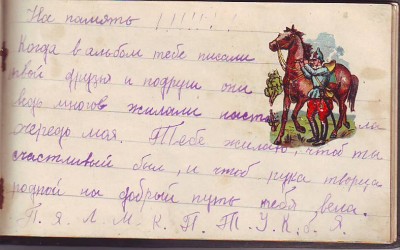 На память !!!!!!
Когда в альбом тебе писали
твои друзья и подруги они
ведь многов жилали наста ла
очередь моя. Тебе жилаю, чтоб ты
счастливый был, и чтоб рука творца
родной на добрый путь тебя вела.
П. Я. Л. М. К. П. Т. У. К. Я.